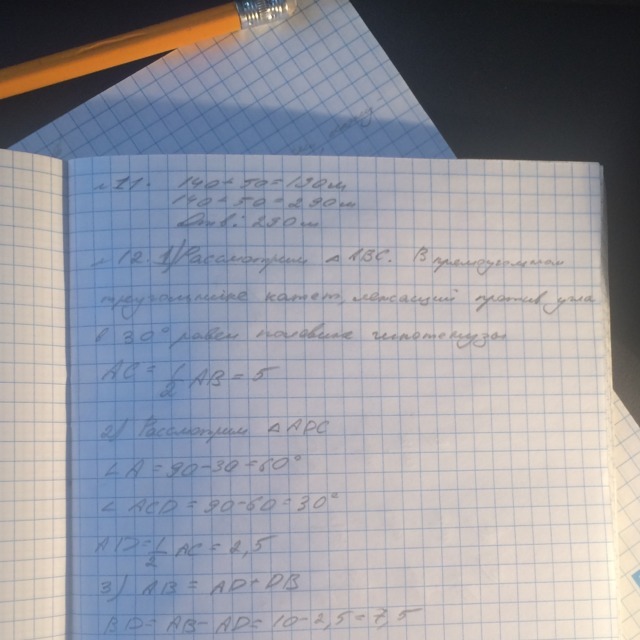 11.
140 - 50 = 190м
140 + 50 = 290м
Отв: 290м
12. 1) Рассмотрим △ABC. В прямоугольном
треугольнике катет, лежащий против угла
в 30° равен половине гипотенузы
AC = 1/2 AB = 5
2) Рассмотрим △ADC
∠A = 90 - 30 = 60°
∠ACD = 90 - 60 = 30°
AD = 1/2 AC = 2,5
3) AB = AD + DB
BD = AB - AD = 10 - 2,5 = 7,5